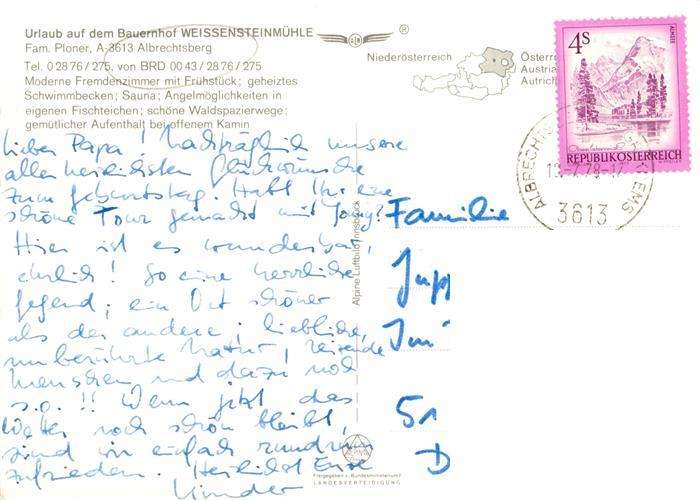 Urlaub auf dem Bauernhof WEISSENSTEINMÜHLE
Fam. Ploner, A-3613 Albrechtsberg
Tel. 0 28 76 / 275, von BRD 00 43 / 28 76 / 275
Moderne Fremdenzimmer mit Frühstück; geheiztes
Schwimmbecken; Sauna; Angelmöglichkeiten in
eigenen Fischteichen; schöne Waldspazierwege;
gemütlicher Aufenthalt bei offenem Kamin
®
Niederösterreich
Österr
Austria
Autrich
4 S
ALMSEE
REPUBLIK ÖSTERREICH
ALBRECHTS EMS
3613
Lieber Papa! Nachträglich unsere
allerherzlichsten Glückwünsche
zum Geburtstag. Habt Ihr eine
schöne Tour gemacht mit
Hier ist es wunderbar,
ehrlich! So eine herrliche
Gegend; ein Ort schöner
als der andere; liebliche,
unberührte Natur, reizende
Menschen und dazu noch
s.o.!! Wenn jetzt das
Wetter noch schön bleibt,
sind wir einfach rundrum
zufrieden. Herzlichst Eure
Kinder
Familie
51
D
Alpine Luftbild Innsbruck
Freigegeben v. Bundesministerium f.
LANDESVERTEIDIGUNG